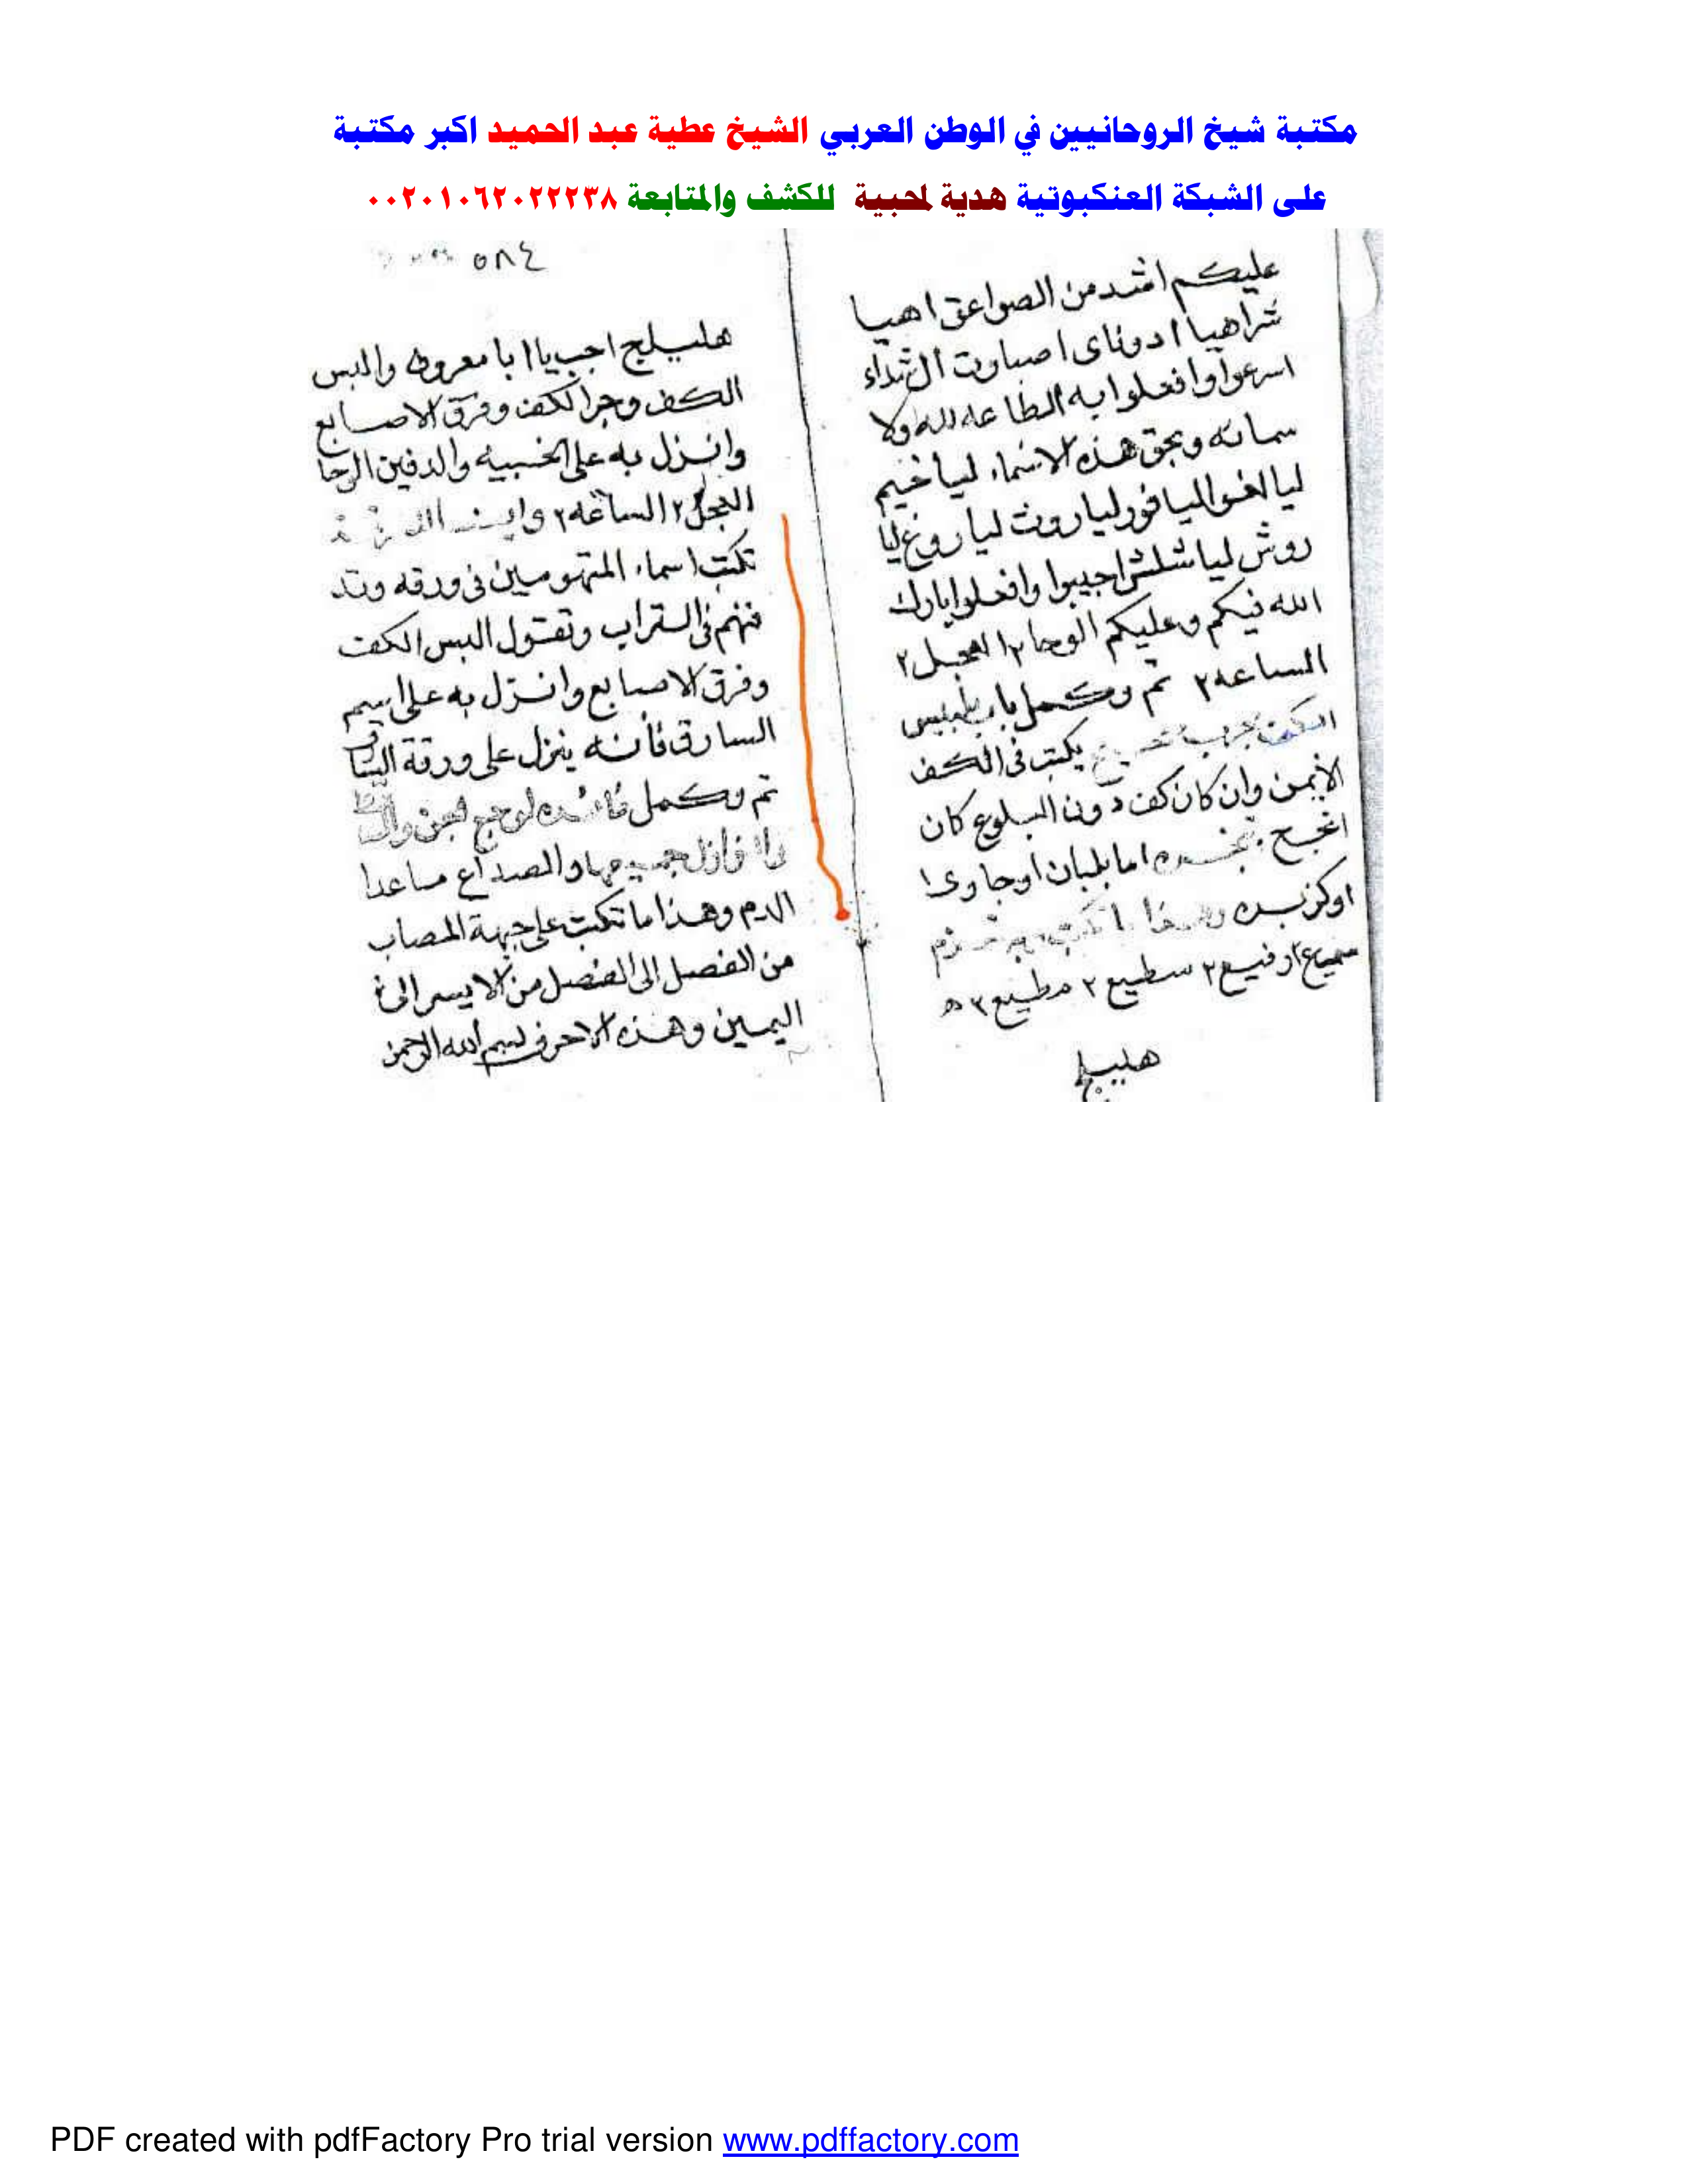 مكتبة شيخ الروحانيين في الوطن العربي الشيخ عطية عبد الحميد اكبر مكتبة
على الشبكة العنكبوتية هدية لمحبية للكشف والمتابعة ٠٠٢٠١٠٦٢٠٢٢٢٣٨
عليكم اشد من الصواعق اهيا
شراهيا ادوناى اصباوت ال شداء
اسرعوا وافعلوا به الطاعه لله ولا
سمائه وبحق هذه الاسماء ليا خيم
ليا لغو ليا فور ليا روث ليا روغ ليا
روش ليا شلش اجيبوا وافعلوا بارك
الله فيكم وعليكم الوحا ٢ العجل ٢
الساعه ٢ تم وكمل باب تلبيس
الكف يكتب فى الكف
الأيمن وان كان كف دون البلوغ كان
انجح اما بلبان اوجاوى
اوكزبره
سطيع ٢ مطيع ٢
هليلج
٥٨٤
هليلج اجب يا ابا معروف والبس
الكف وجر الكف وفرق الاصابع
وانزل به على الخبيه والدفين الوحا
العجل ٢ الساعه ٢
تكتب اسماء المتهومين فى ورقه وتد
فنهم فى التراب وتقول البس الكف
وفرق الاصابع وانزل به على اسم
السارق فأنه ينزل على ورقة السارق
تم وكمل فائده لوجع
والصداع ماعدا
الدم وهذا ما تكتب على جبهة المصاب
من الفصل الى الفصل من الايسر الى
اليمين وهذه الاحرف بسم الله الرحمن
PDF created with pdfFactory Pro trial version www.pdffactory.com